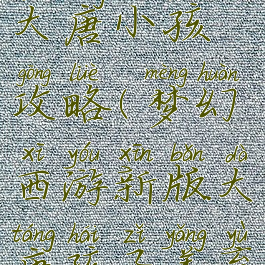 大唐小孩
gōng lüè mèng huàn
攻略(梦幻
xī yóu xīn bǎn dà
西游新版大
táng hái zǐ yǎng yù